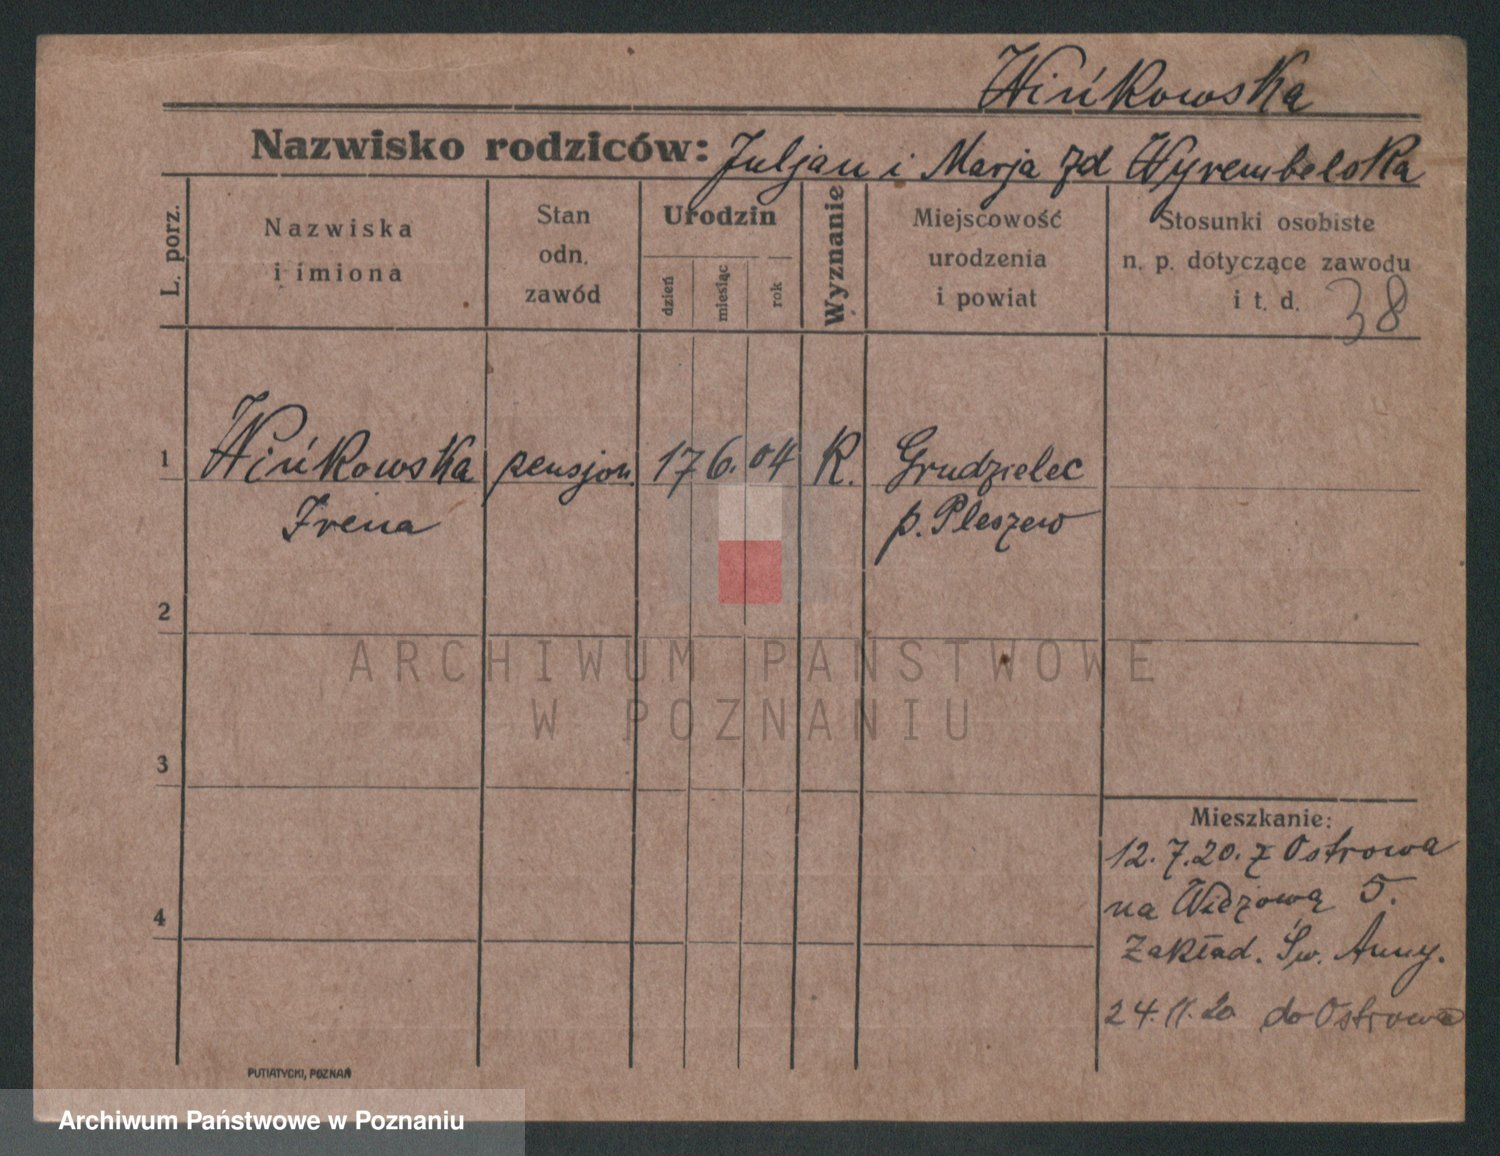 Wińkowska
Nazwisko rodziców: Juljan i Marja zd Wyrembelska
L. porz.
Nazwiska
i imiona
Stan
odn.
zawód
Urodzin
dzień
miesiąc
rok
Wyznanie
Miejscowość
urodzenia
i powiat
Stosunki osobiste
n. p. dotyczące zawodu
i t. d. 38
1 Wińkowska pensjon. 17 6. 04 K. Grudzielec
Irena p. Pleszew
2
ARCHIWUM PAŃSTWOWE
W POZNANIU
3
Mieszkanie:
12. 7. 20. z Ostrowa
na 5.
4
Zakład. Św. Anny.
24. 11. 20 do Ostrowa
PUTIATYCKI, POZNAŃ
Archiwum Państwowe w Poznaniu